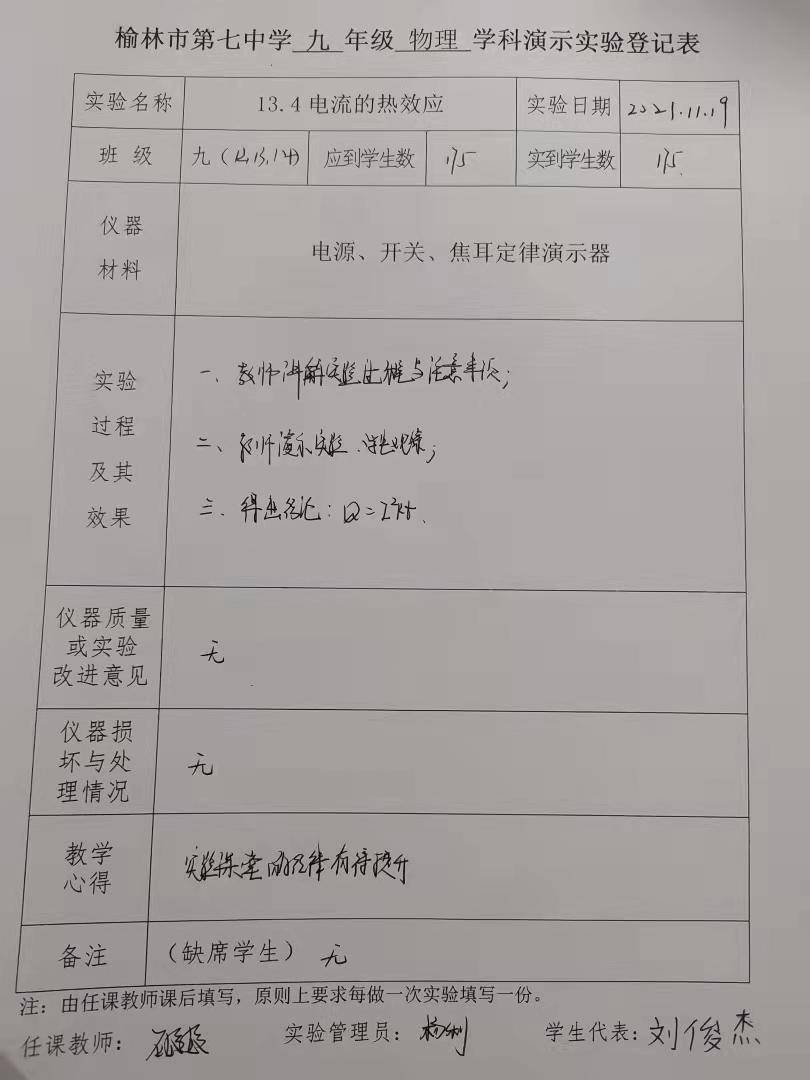 榆林市第七中学 九 年级 物理 学科演示实验登记表
实验名称 13.4电流的热效应 实验日期 2021.11.19
班 级 九（12,13,14） 应到学生数 175 实到学生数 175
仪器
材料
电源、开关、焦耳定律演示器
实验
过程
及其
效果
一、教师讲解实验过程与注意事项；
二、教师演示实验、学生观察；
三、得出结论：Q=I²Rt.
仪器质量
或实验
改进意见
无
仪器损
坏与处
理情况
无
教学
心得
实验课堂的纪律有待提升
备注 （缺席学生） 无
注：由任课教师课后填写，原则上要求每做一次实验填写一份。
任课教师： 实验管理员：杨利 学生代表：刘俊杰